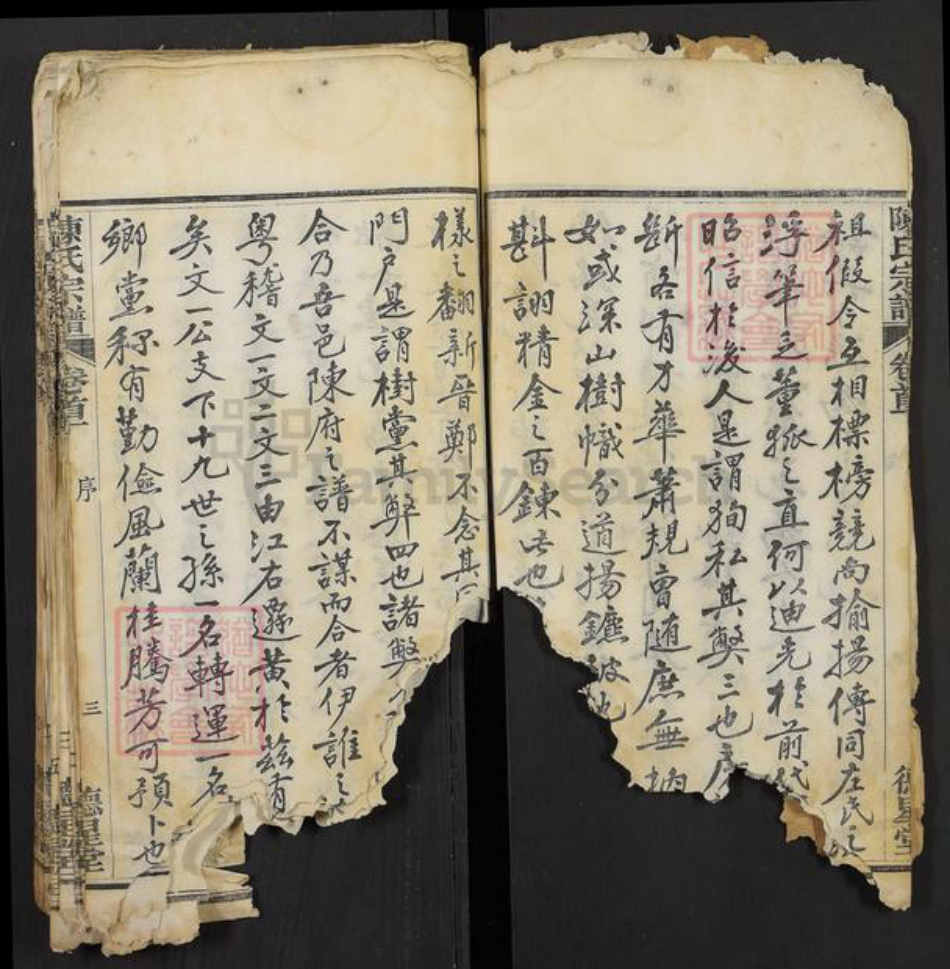 陳氏宗譜 卷首 德星堂
祖假令互相標榜競尚揄揚傳同左氏之
浮筆乏董狐之直何以迪光於前代
昭信於後人是謂狥私其弊三也
斯各有才華蕭規曹隨庶無
如或深山樹幟分道揚鑣
斟詡精金之百鍊此也
樣之翻新晉鄭不念其同
門户是謂樹黨其弊四也諸弊
合乃吾邑陳府之譜不謀而合者伊誰之
粵稽文一文二文三由江右遷黃於茲有
矣文一公支下十九世之孫一名轉運一名
鄉黨稱有勤儉風蘭桂騰芳可預卜也
陳氏宗譜 卷首 序 三 德星堂
FamilySearch